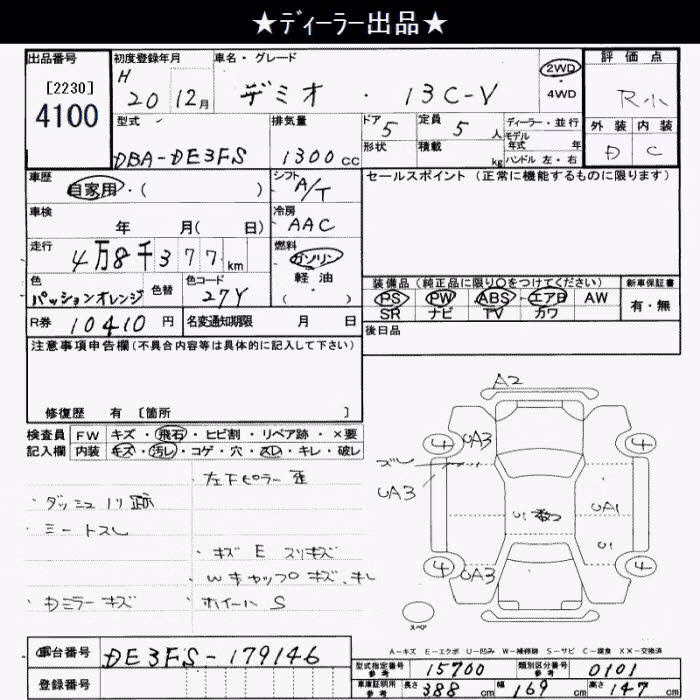 ★ディーラー出品★
出品番号 初度登録年月 車名・グレード 評価点
[2230] H 2WD
4100 20 12月 デミオ ・ 13C-V 4WD R小
型式 排気量 ドア 5 定員 5 人 ディーラー・並行 外装 内装
モデル年式 年
DBA-DE3FS 1300cc 形状 積載 kg ハンドル 左・右 D C
車歴 自家用・( ) シフト A/T セールスポイント (正常に機能するものに限ります)
車検 年 月( 日) 冷房 AAC
走行 4万8千377km 燃料 ガソリン
軽油
( )
色 パッションオレンジ 色替 色コード 27Y
装備品 (純正品に限り○をつけてください) 新車保証書
PS PW ABS エアB AW 有・無
SR ナビ TV カワ
R券 10410円 名変通知期限 月 日 後日品
注意事項申告欄(不具合内容等は具体的に記入して下さい)
修復歴 有 [箇所 ]
検査員 FW キズ・飛石・ヒビ割・リペア跡・×要
記入欄 内装 キズ・汚レ・コゲ・穴・スレ・キレ・破レ
左下ピラー 歪
・ダッシュ ノリ跡
・ミートスレ
・キズ E スリキズ
・Wキャップ キズ、キレ
・Dミラー キズ
・ホイール S
A2
4 UA3 4
ズレ
UA3 U1 数つ UA1
U1
4 UA3 4
スペア
A-キズ E-エクボ U-凹み W-補修跡 S-サビ C-腐食 XX-交換済
車台番号 DE3FS-179146
登録番号
型式指定番号 参考 15700 類別区分番号 参考 0101
車庫証明用 参考 長さ 388 cm 幅 169 cm 高さ 147 cm